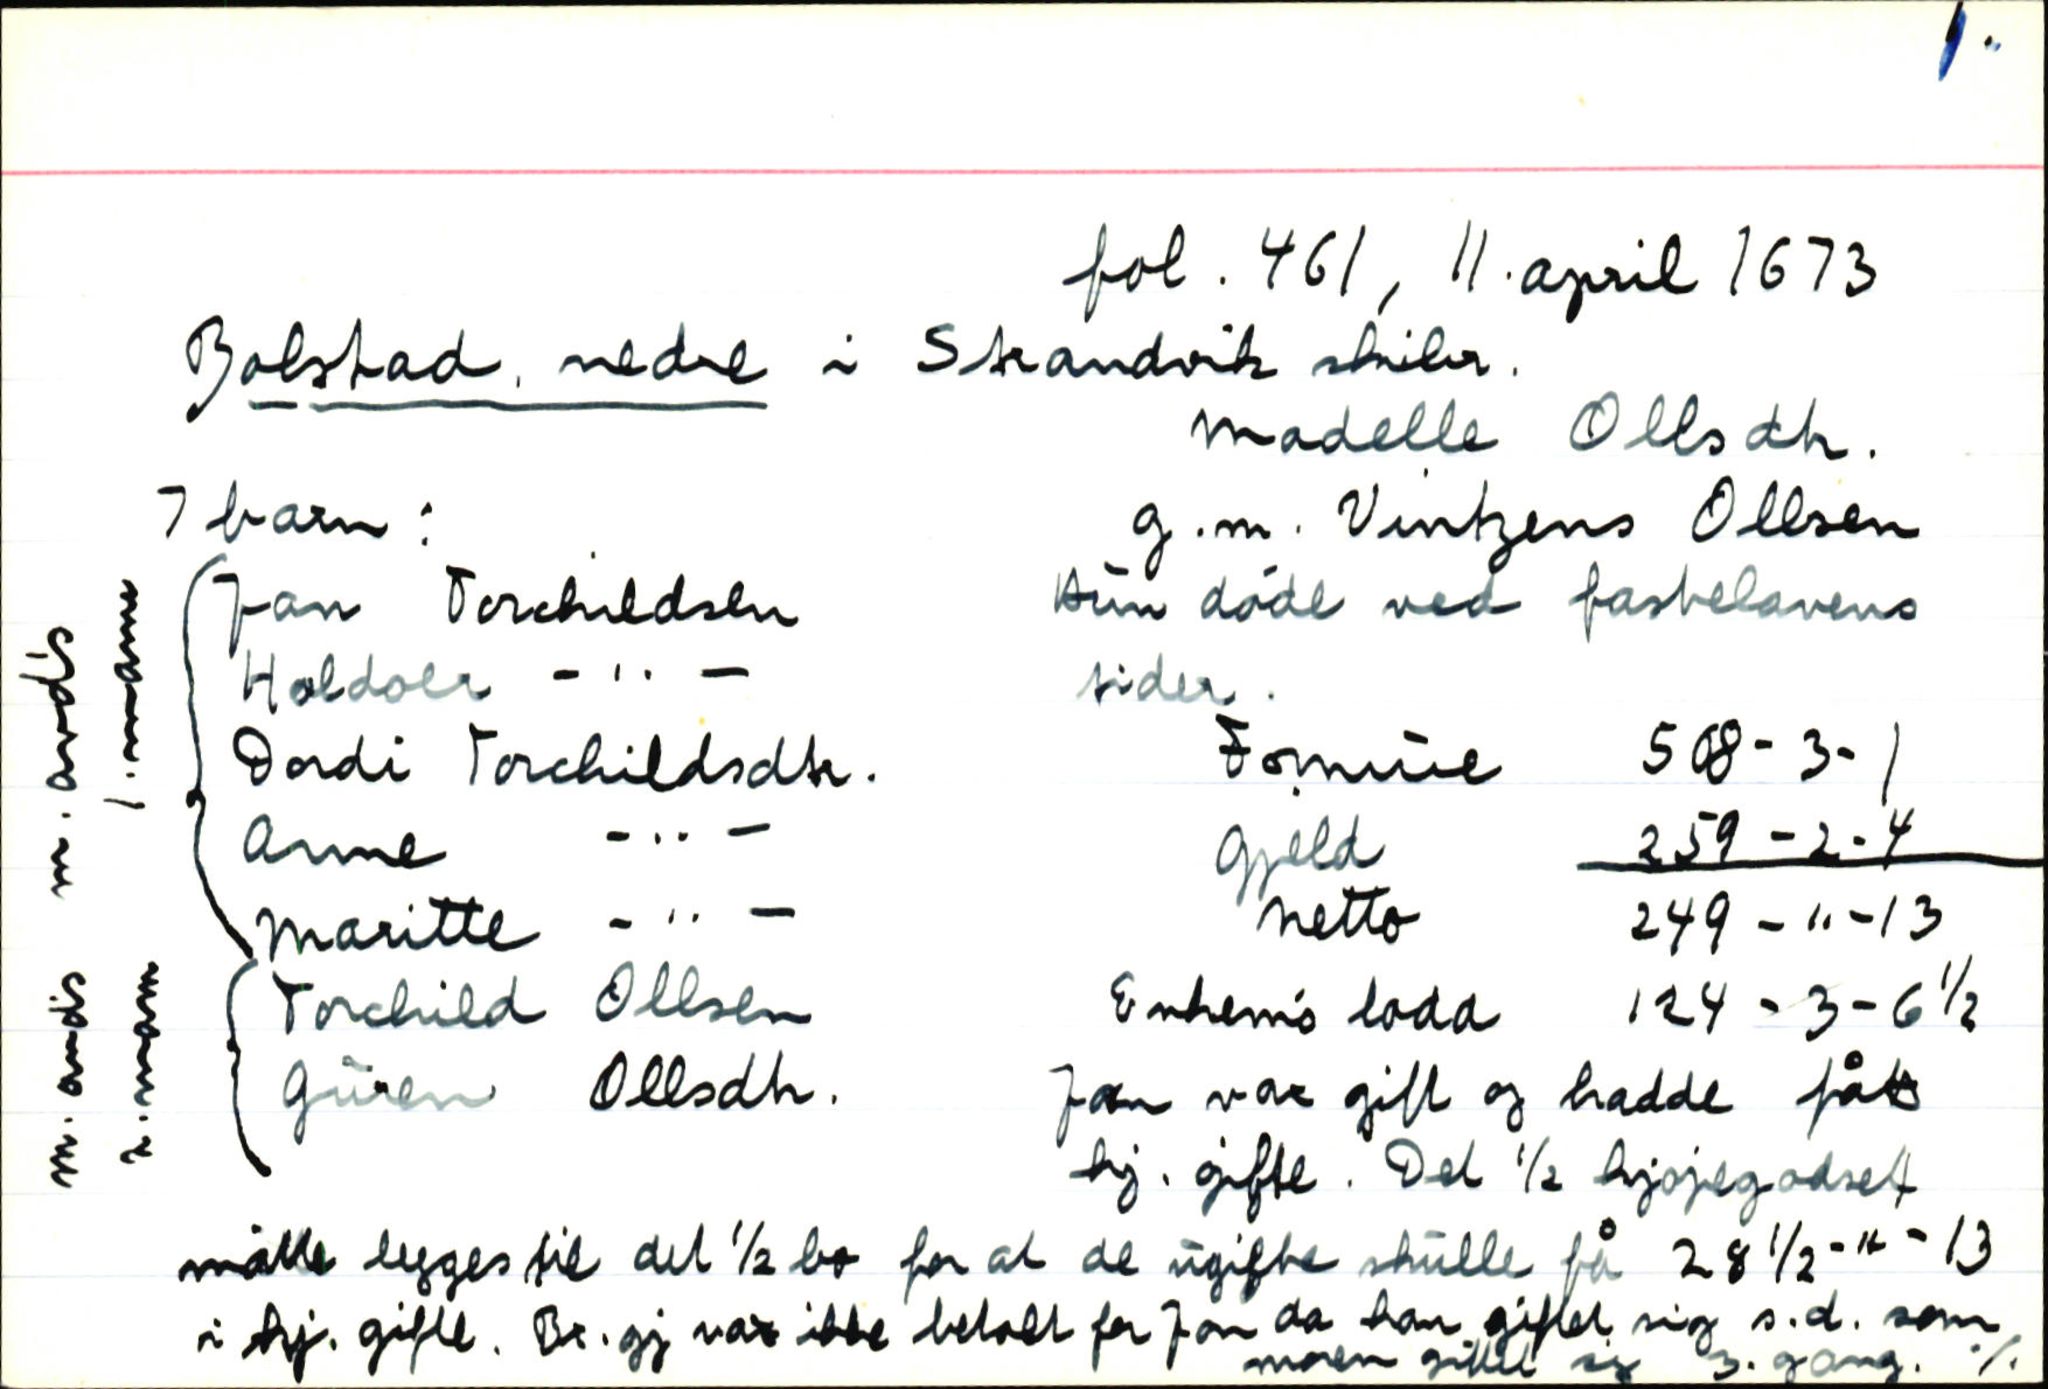 1.
fol. 461, 11. april 1673
Bolstad, nedre i Strandvik skibr.
Madelle Ollsdtr.
7 barn:
g.m. Vintzens Ollsen
m. avdøs 1. mann
Jan Torchildsen
Hun døde ved fastelavens
Holdoer - " -
tider.
Dordi Torchildsdtr.
Formue 508 - 3 - 1
Anne - " -
Gjeld 259 - 2 - 4
Maritte - " -
Netto 249 - " - 13
m. avdøs 2. mann
Torchild Ollsen
Enkem's lodd 124 - 3 - 6 1/2
Guren Ollsdtr.
Jan var gift og hadde fått
hj. gifte. Det 1/2 kjøjegodset
måtte legges til det 1/2 bo for at de ugifte skulle få 28 1/2 - " - 13
i hj. gifte. Br. gj var ikke betalt for Jan da han giftet sig s.d. som
moren giftet sig 3. gang. ./.